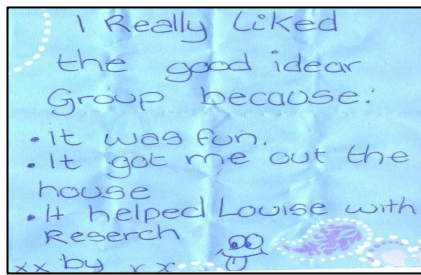 I Really Liked
the good idear
Group because:
• it was fun.
• It got me out the
house
• It helped Louise with
Reserch
xx by xx